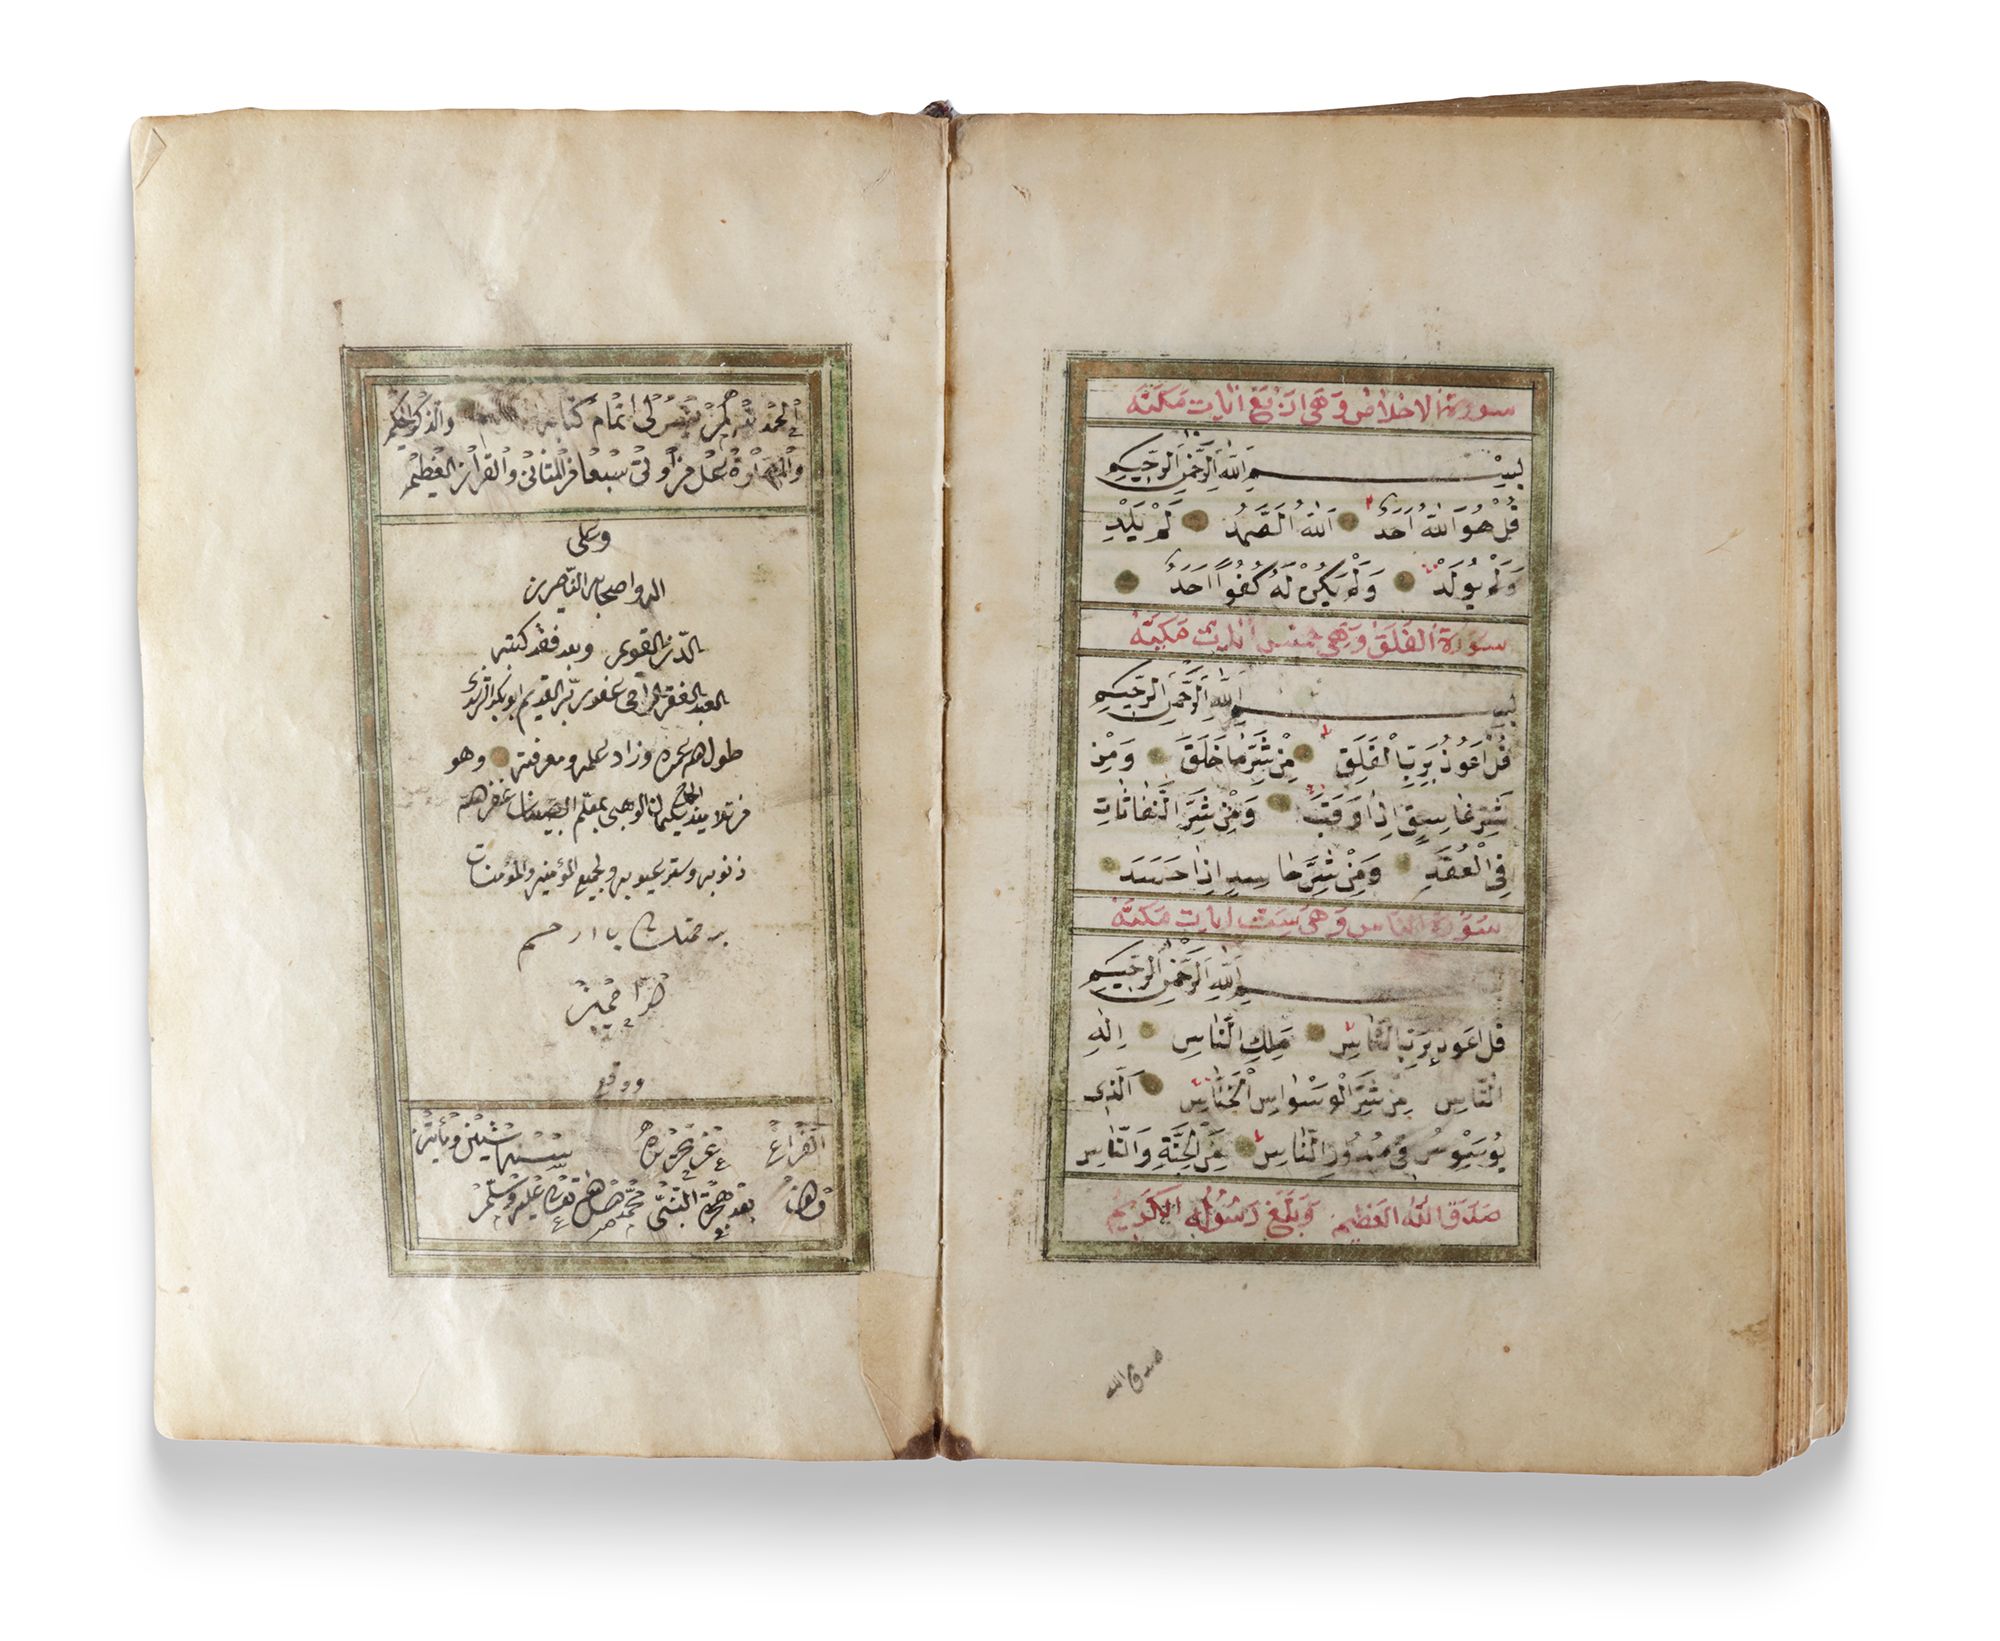 سورة الاخلاص وهى اربع ايات مكية
بسم الله الرحمن الرحيم
قُلْ هُوَ اللهُ اَحَدٌ اَللهُ الصَّمَدُ لَمْ يَلِدْ
وَلَمْ يُولَدْ وَلَمْ يَكُنْ لَهُ كُفُوًا اَحَدٌ
سورة الفلق وهى خمس ايات مكية
بسم الله الرحمن الرحيم
قُلْ اَعُوذُ بِرَبِّ الْفَلَقِ مِنْ شَرِّ مَا خَلَقَ وَمِنْ
شَرِّ غَاسِقٍ اِذَا وَقَبَ وَمِنْ شَرِّ النَّفَّاثَاتِ
فِى الْعُقَدِ وَمِنْ شَرِّ حَاسِدٍ اِذَا حَسَدَ
سورة الناس وهى ست ايات مكية
بسم الله الرحمن الرحيم
قُلْ اَعُوذُ بِرَبِّ النَّاسِ مَلِكِ النَّاسِ اِلٰهِ
النَّاسِ مِنْ شَرِّ الْوَسْوَاسِ الْخَنَّاسِ اَلَّذِى
يُوَسْوِسُ فِى صُدُورِ النَّاسِ مِنَ الْجِنَّةِ وَالنَّاسِ
صدق الله العظيم وبلغ رسوله الكريم
صدق الله
الحمد لله لمن يسر لى اتمام كتابه والذكر الحكيم
والصلوة على من اوتى سبعا من المثانى والقران العظيم
وعلى
اله واصحابه الناصرين
الدين القويم وبعد فقد كتبه
العبد الفقير الراجى عفو ربه القديم ابو بكر
طول عمره وزاد علمه ومعرفته وهو
من تلاميذ الحاج سليمان الوهبى معلم الصبيان غفر
ذنوبه وستر عيوبه ولجميع المؤمنين والمؤمنات
برحمتك يا ارحم
الراحمين
ووقع
الفراغ عن تحريره سنه ومأتين
والف بعد هجرة النبى محمد صلى الله تعالى عليه وسلم